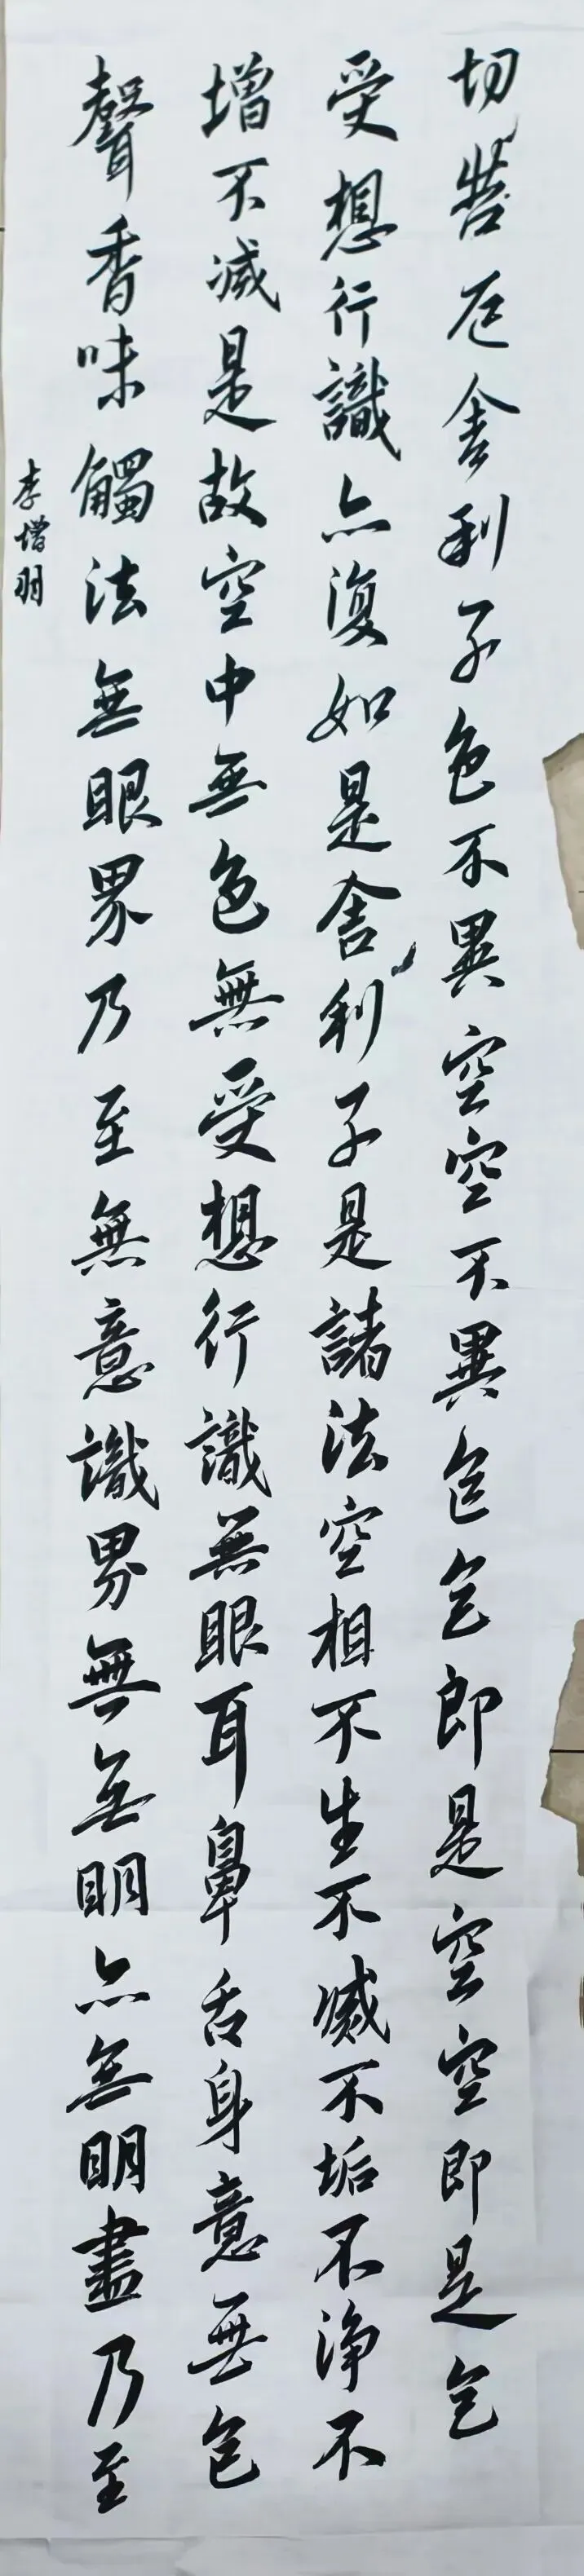 切苦厄舍利子色不異空空不異色色即是空空即是色
受想行識亦復如是舍利子是諸法空相不生不滅不垢不净不
增不减是故空中無色無受想行識無眼耳鼻舌身意無色
聲香味觸法無眼界乃至無意識界無無明亦無無明盡乃至
李增羽